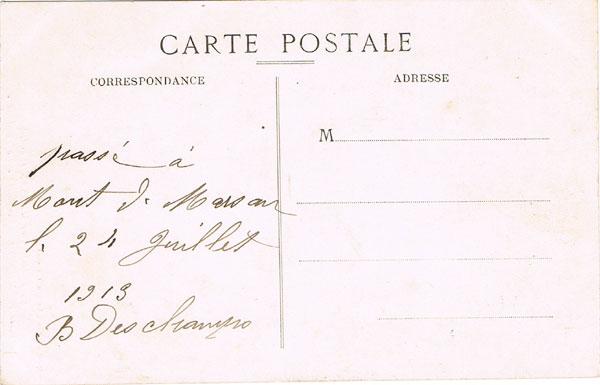 CARTE POSTALE
CORRESPONDANCE
ADRESSE
M
passé à
Mont d. Marsan
l. 24 Juillet
1913
B Deschamps